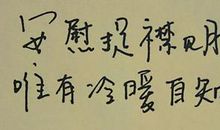 安慰捉襟见肘
唯有冷暖自知